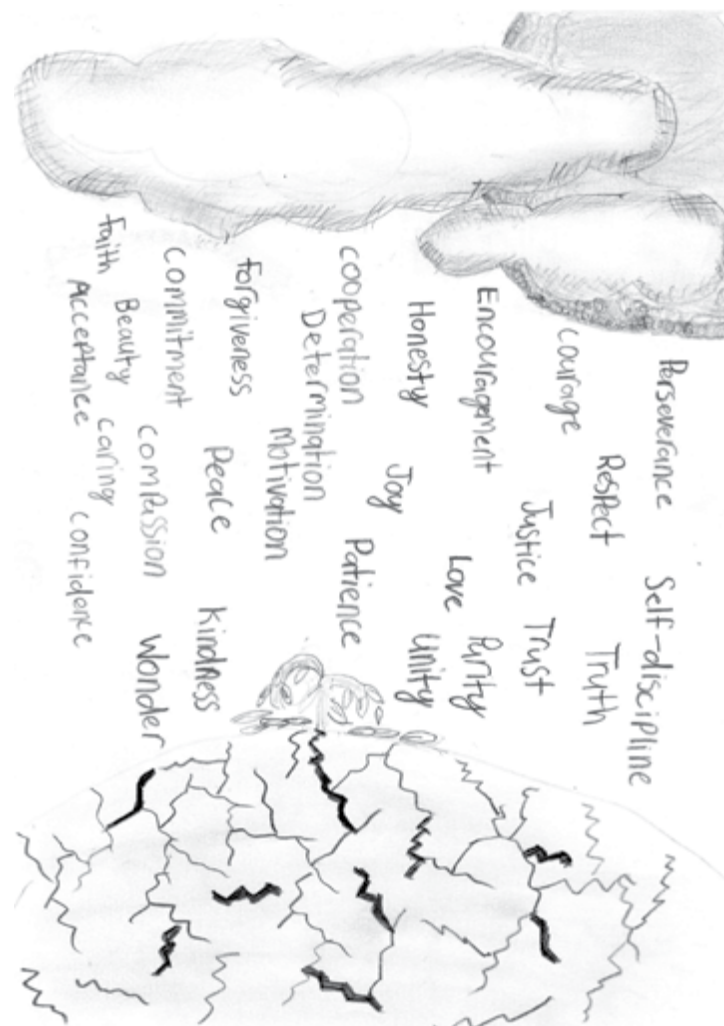 Perseverance
Self-discipline
Respect
Truth
courage
Justice
Trust
Encouragement
Purity
Love
Honesty
Unity
Joy
Patience
cooperation
Determination
Motivation
forgiveness
Peace
Kindness
commitment
compassion
Wonder
Beauty
faith
caring
Acceptance
confidence